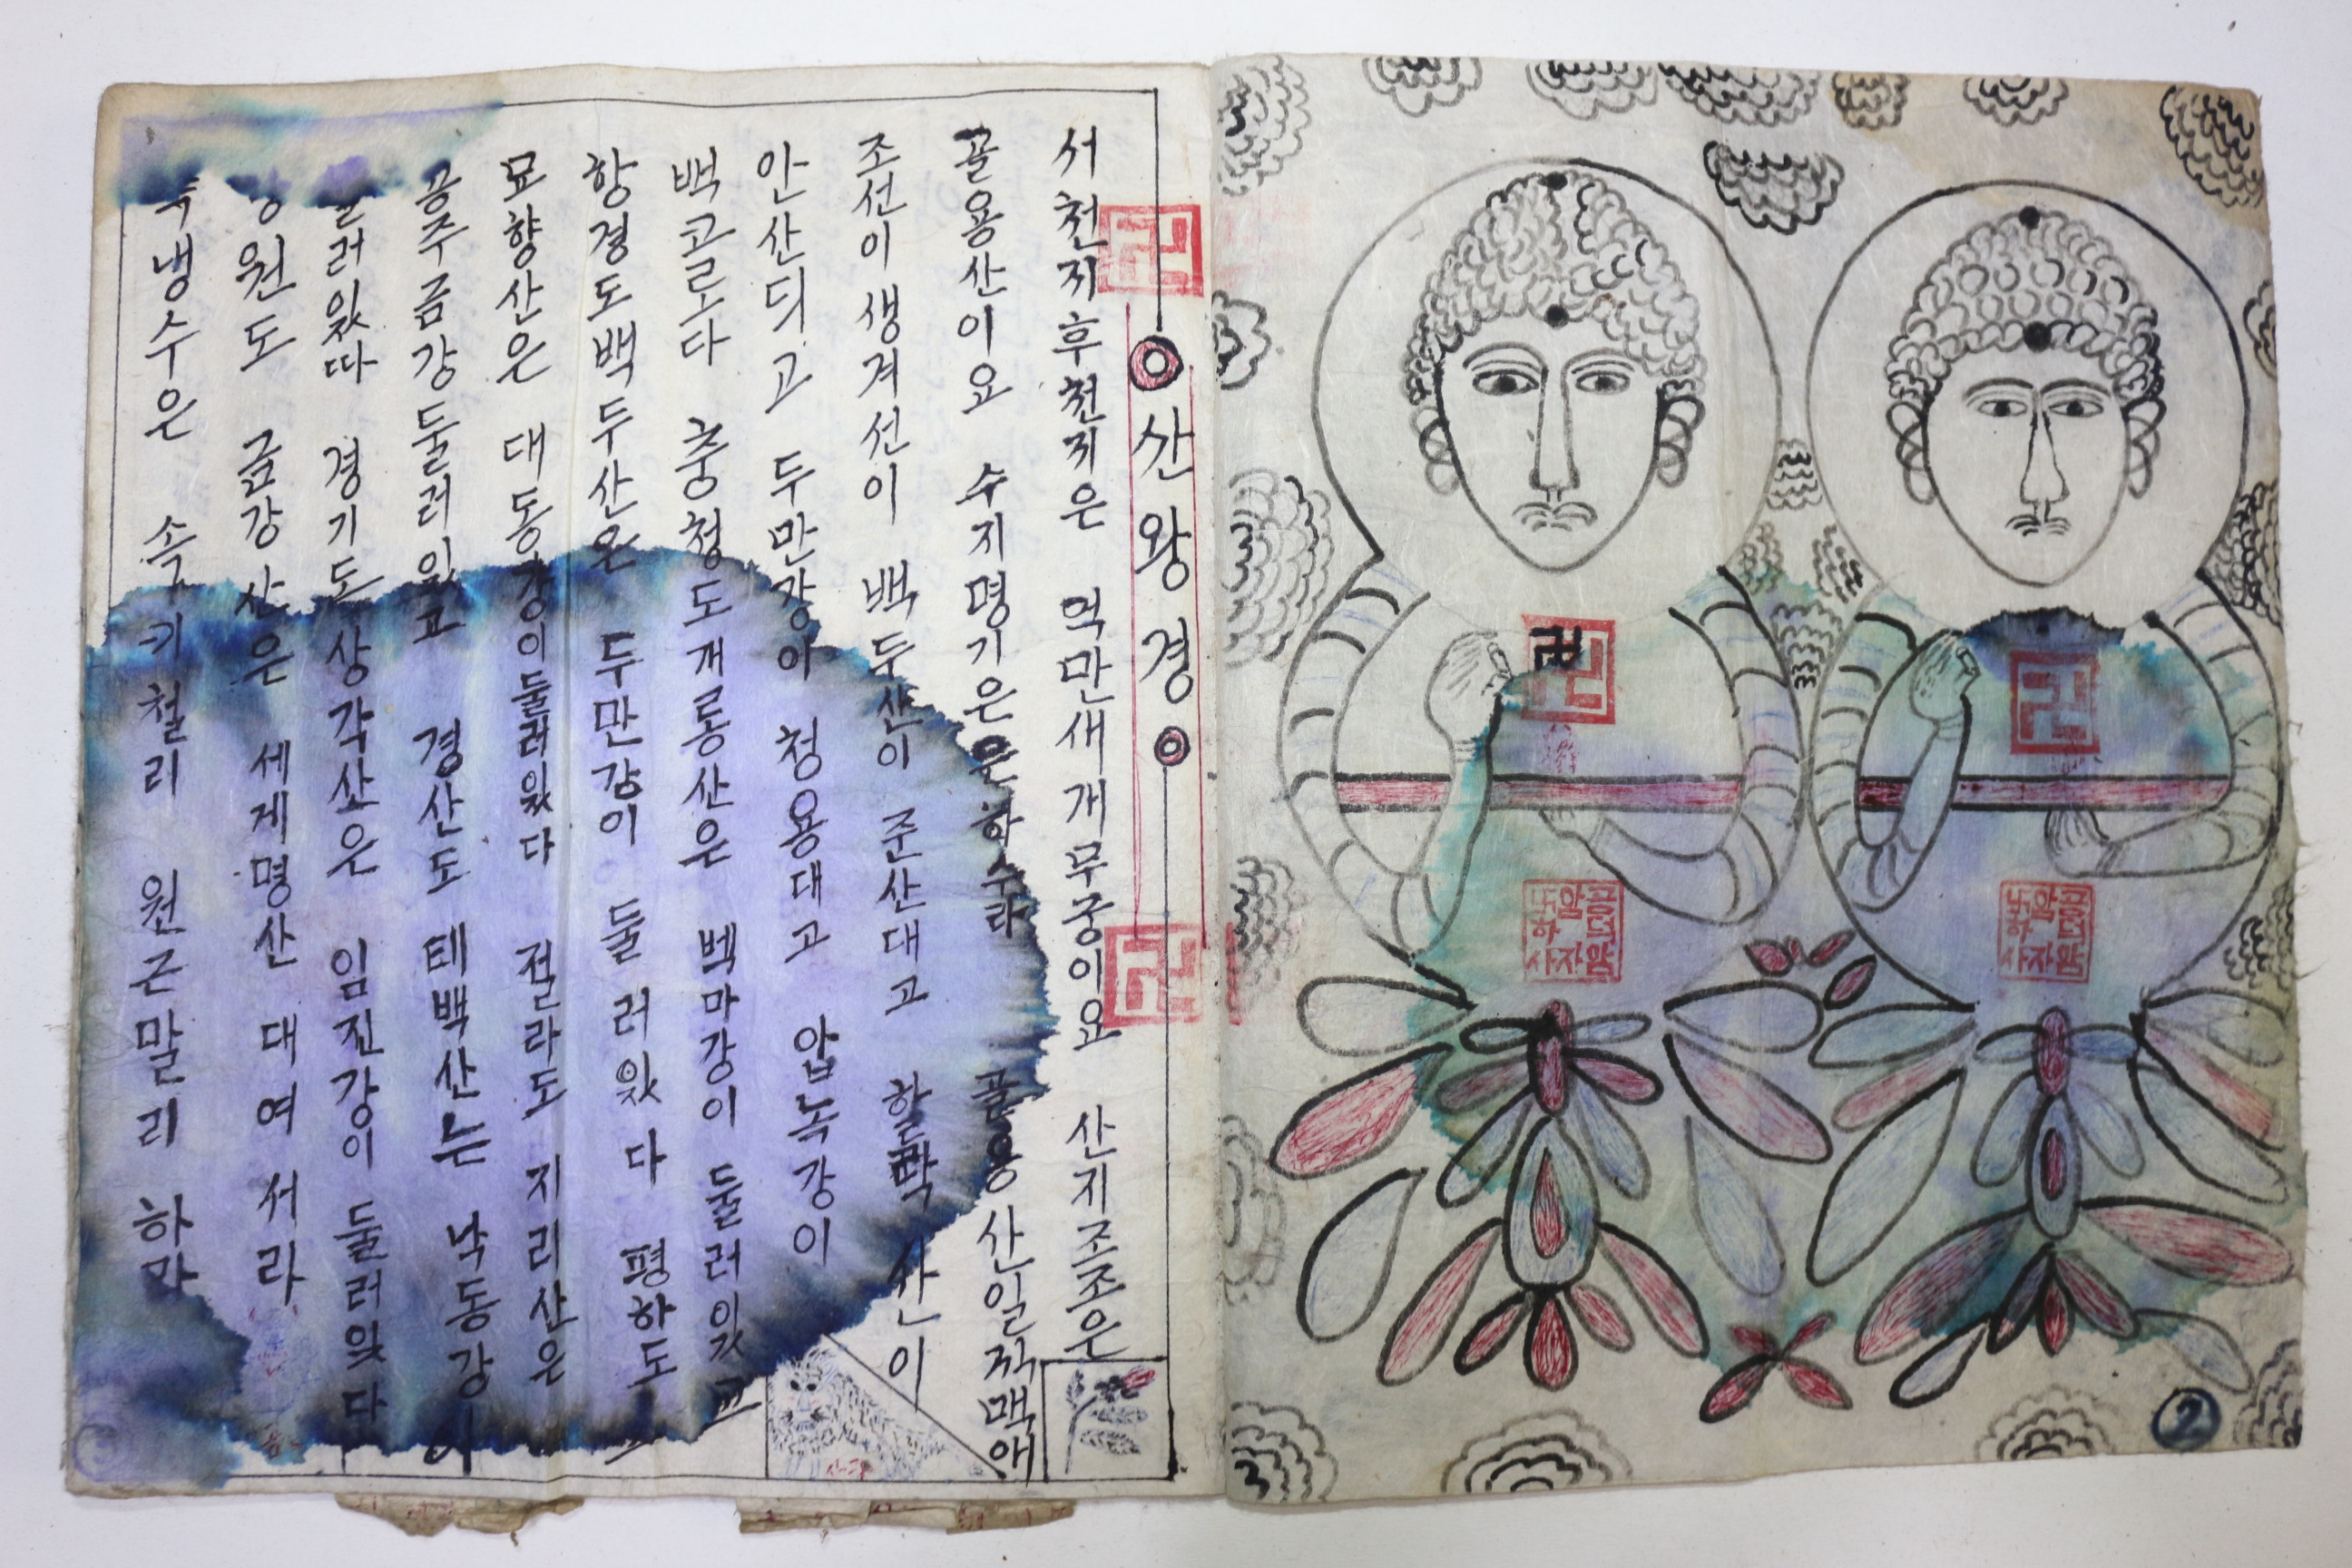 산왕경
서천지후천지은 억만새개무궁이요 산지조조은
골용산이요 수지명기은 하수라 골용산일지맥애
조선이생겨선이 백두산이 준산대고 한락산이
안산되고 두만강이 청용대고 압녹강이
백고로다 충청도개룡산은 벡마강이 둘러있고
항경도백두산은 두만강이 둘러있다 평하도
묘향산은 대동강이둘러있다 전라도 지리산은
공주금강둘러있고 경산도 태백산는 낙동강이
둘러있따 경기도상각산은 임진강이 둘러있다
강원도 금강산은 세계명산 대여서라
냉수은 속키철리 원근말리 하라
산다
卍
卍
卍
卍
卍
골드암
암자
낫하사
골드암
암자
낫하사
2